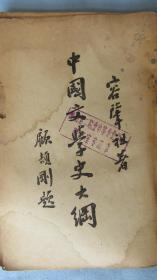 容肇祖著
中國文學史大綱
顧頡剛題